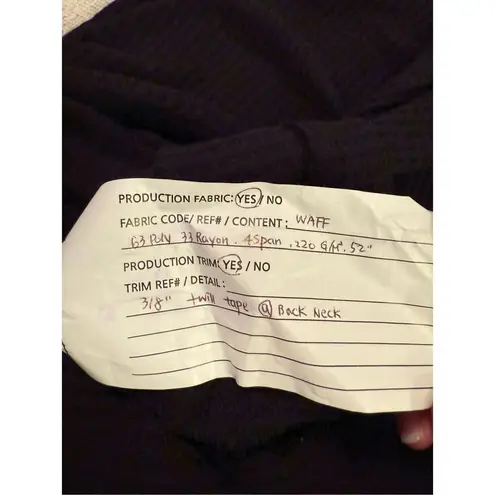 PRODUCTION FABRIC: YES / NO
FABRIC CODE/ REF# / CONTENT: WAFF
63 Poly 33 Rayon . 4 Span . 220 G/M . 52"
PRODUCTION TRIM: YES / NO
TRIM REF# / DETAIL:
3/8" twill tape @ Back Neck